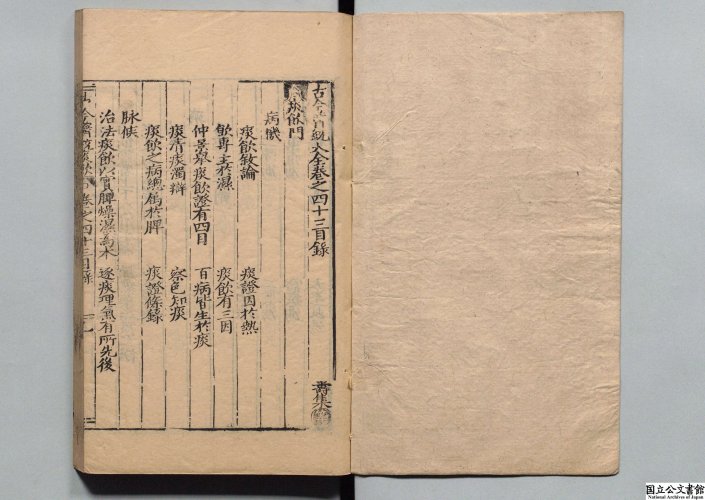 古今醫統大全卷之四十三目錄
痰飲門
病機
痰飲敘論 痰證因於熱
飲專主於濕 痰飲有三因
仲景舉痰飲證有四目 百病皆生於痰
痰清痰濁辯 察色知痰
痰飲之病總爲於脾 痰證條錄
脉候
治法痰飲以實脾燥濕爲本 逐痰理氣有所先後
卷之四十三目錄
壽集
国立公文書館
National Archives of Japan